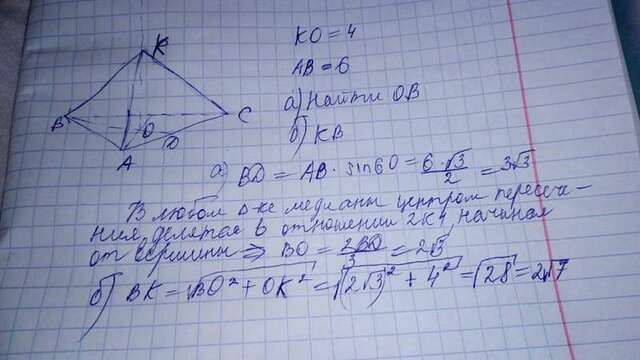 K
B
C
O
A
D
KO = 4
AB = 6
а) Найти OB
б) KB
а) BD = AB · sin60 = 6·√3/2 = 3√3
В любом Δ-ке медианы центром пересече-
ния делятся в отношении 2к1, начиная
от вершины ⇒ BO = 2BD/3 = 2√3
б) BK = √BO² + OK² = √(2√3)² + 4² = √28 = 2√7